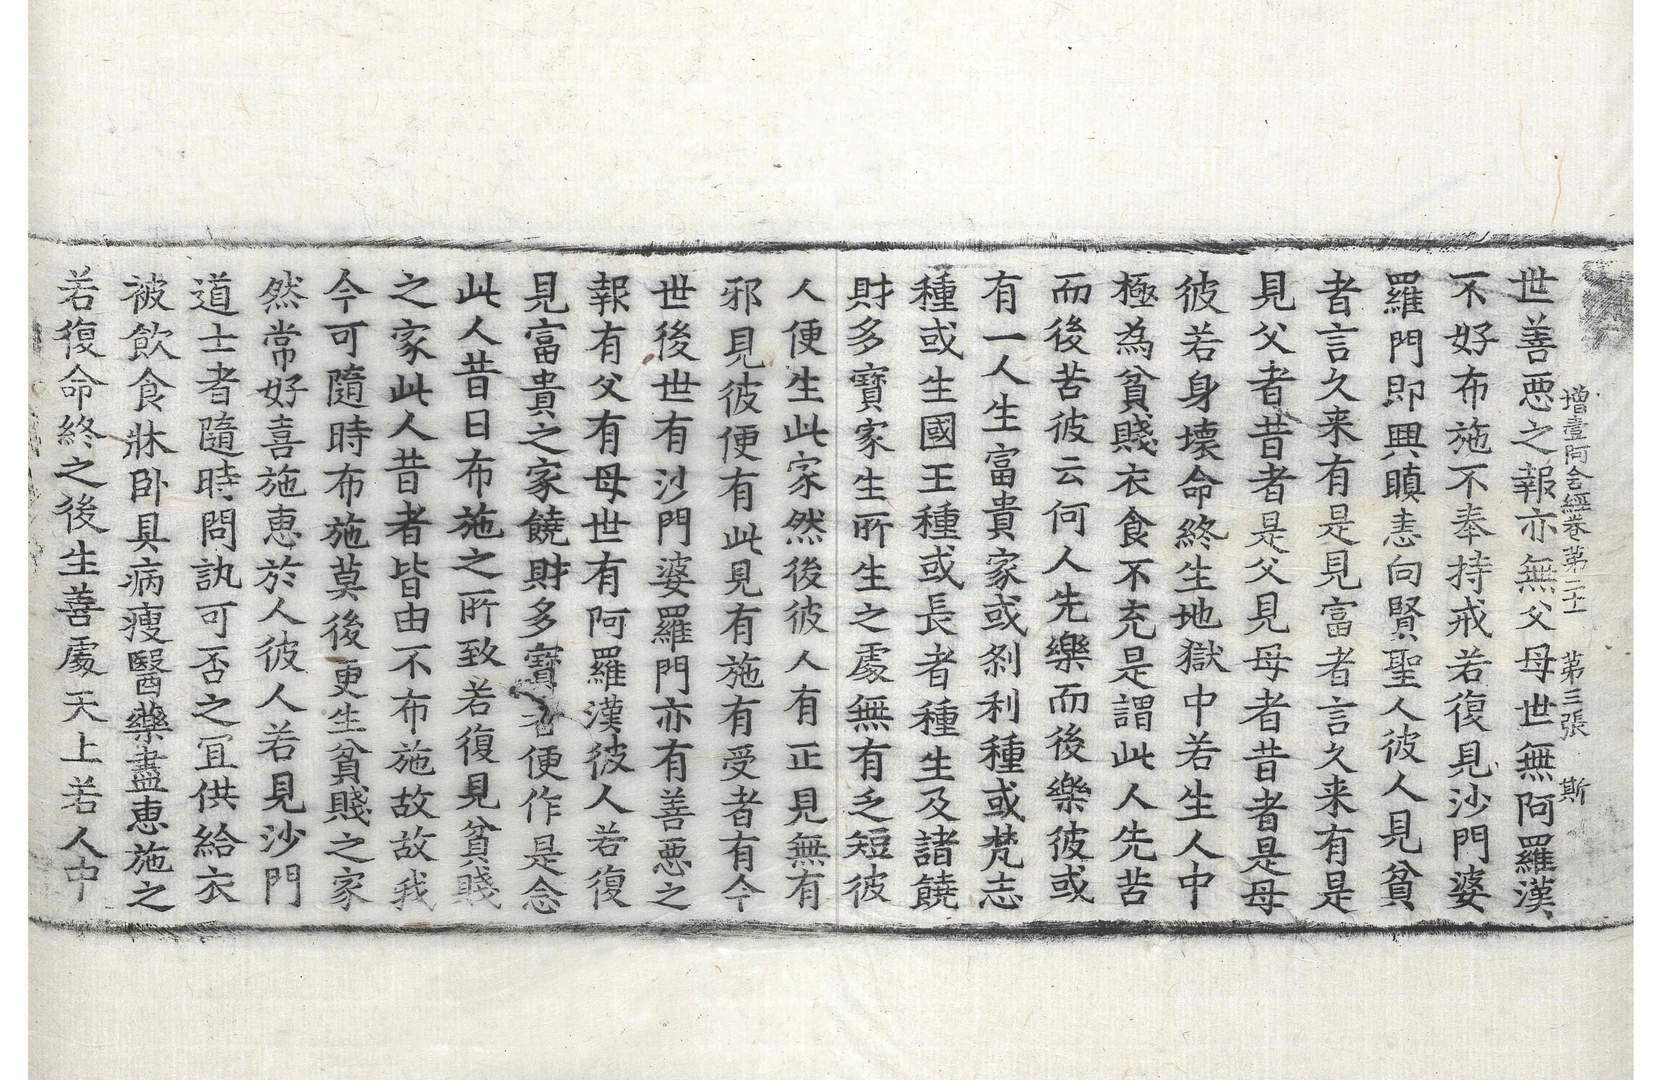 增壹阿含經卷第二十一 第三張 斯
世善惡之報亦無父母世無阿羅漢
不好布施不奉持戒若復見沙門婆
羅門即興瞋恚向賢聖人彼人見貧
者言久来有是見富者言久来有是
見父者昔者是父見母者昔者是母
彼若身壞命終生地獄中若生人中
極為貧賤衣食不充是謂此人先苦
而後苦彼云何人先樂而後樂彼或
有一人生富貴家或剎利種或梵志
種或生國王種或長者種生及諸饒
財多寶家生所生之處無有乏短彼
人便生此家然後彼人有正見無有
邪見彼便有此見有施有受者有今
世後世有沙門婆羅門亦有善惡之
報有父有母世有阿羅漢彼人若復
見富貴之家饒財多寶者便作是念
此人昔日布施之所致若復見貧賤
之家此人昔者皆由不布施故故我
今可隨時布施莫後更生貧賤之家
然常好喜施惠於人彼人若見沙門
道士者隨時問訊可否之冝供給衣
被飲食牀卧具病瘦醫藥盡惠施之
若復命終之後生善處天上若人中